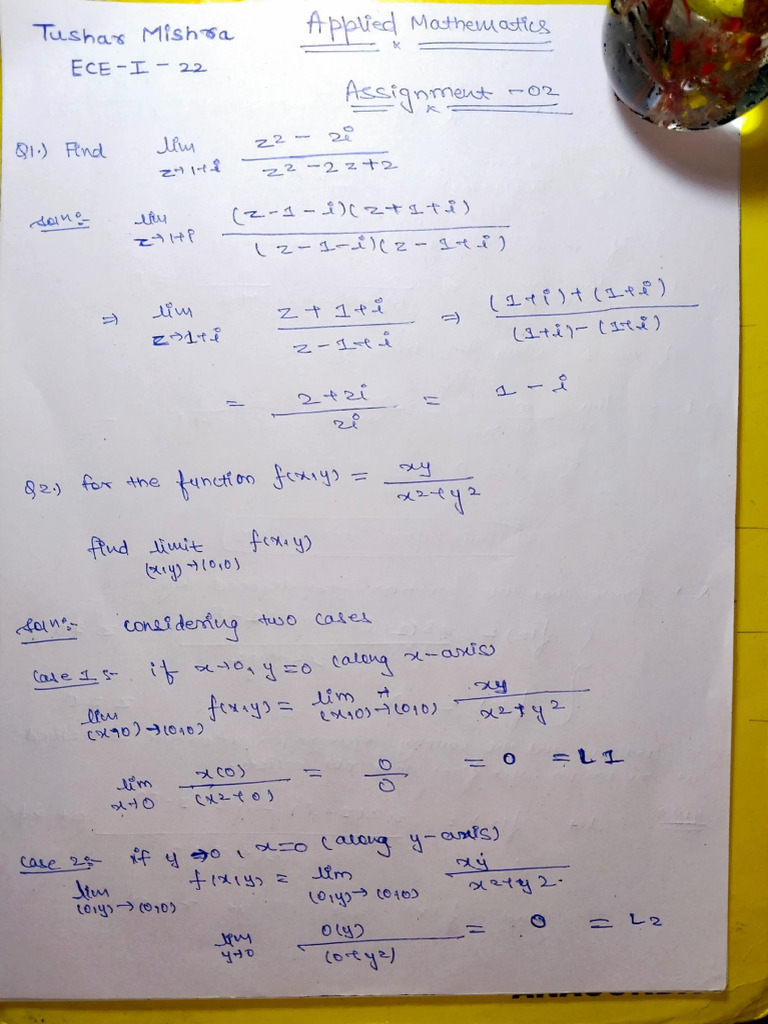 Tushar Mishra
ECE-I-22
Applied Mathematics
Assignment -02
Q1.) Find lim z→1+i z2 - 2i / z2 - 2z+2
Soln:- lim z→1+i (z-1-i)(z+1+i) / (z-1-i)(z-1+i)
⇒ lim z→1+i z+1+i / z-1+i ⇒ (1+i)+(1+i) / (1+i)-(1+i)
= 2+2i / 2i = 1-i
Q2.) for the function f(x,y) = xy / x2+y2
find limit (x,y)→(0,0) f(x,y)
Soln:- considering two cases
Case 1:- if x→0, y=0 (along x-axis)
lim (x,0)→(0,0) f(x,y) = lim (x,0)→(0,0) xy / x2+y2
lim x→0 x(0) / (x2+0) = 0/0 = 0 = L1
Case 2:- if y→0, x=0 (along y-axis)
lim (0,y)→(0,0) f(x,y) = lim (0,y)→(0,0) xy / x2+y2.
lim y→0 0(y) / (0+y2) = 0 = L2